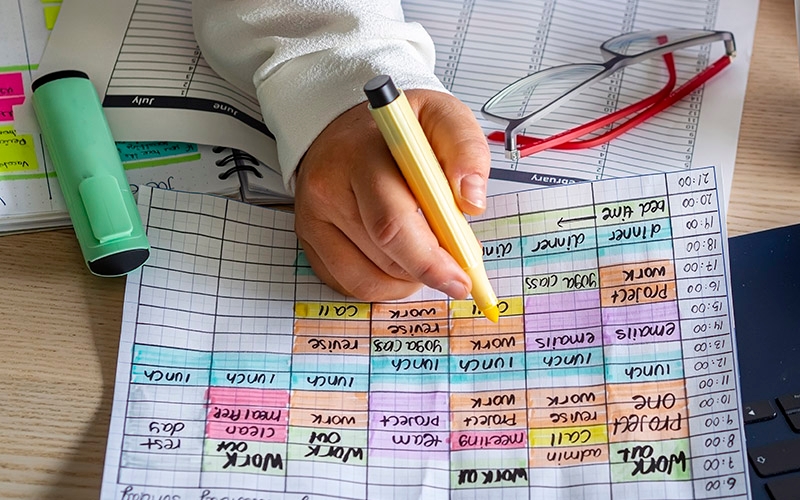 Sunday
6:00
7:00
8:00
9:00
10:00
11:00
12:00
13:00
14:00
15:00
16:00
17:00
18:00
19:00
20:00
21:00
Work
out
PROJECT
one
lunch
emails
Project
work
dinner
bed time
admin
call
revise
work
lunch
emails
yoga class
dinner
work out
meeting
Project
work
lunch
work
team
project
lunch
yoga class
revise
work
Work
out
work
lunch
revise
call
Work
out
clean
meal PREP
lunch
rest
day
lunch
July